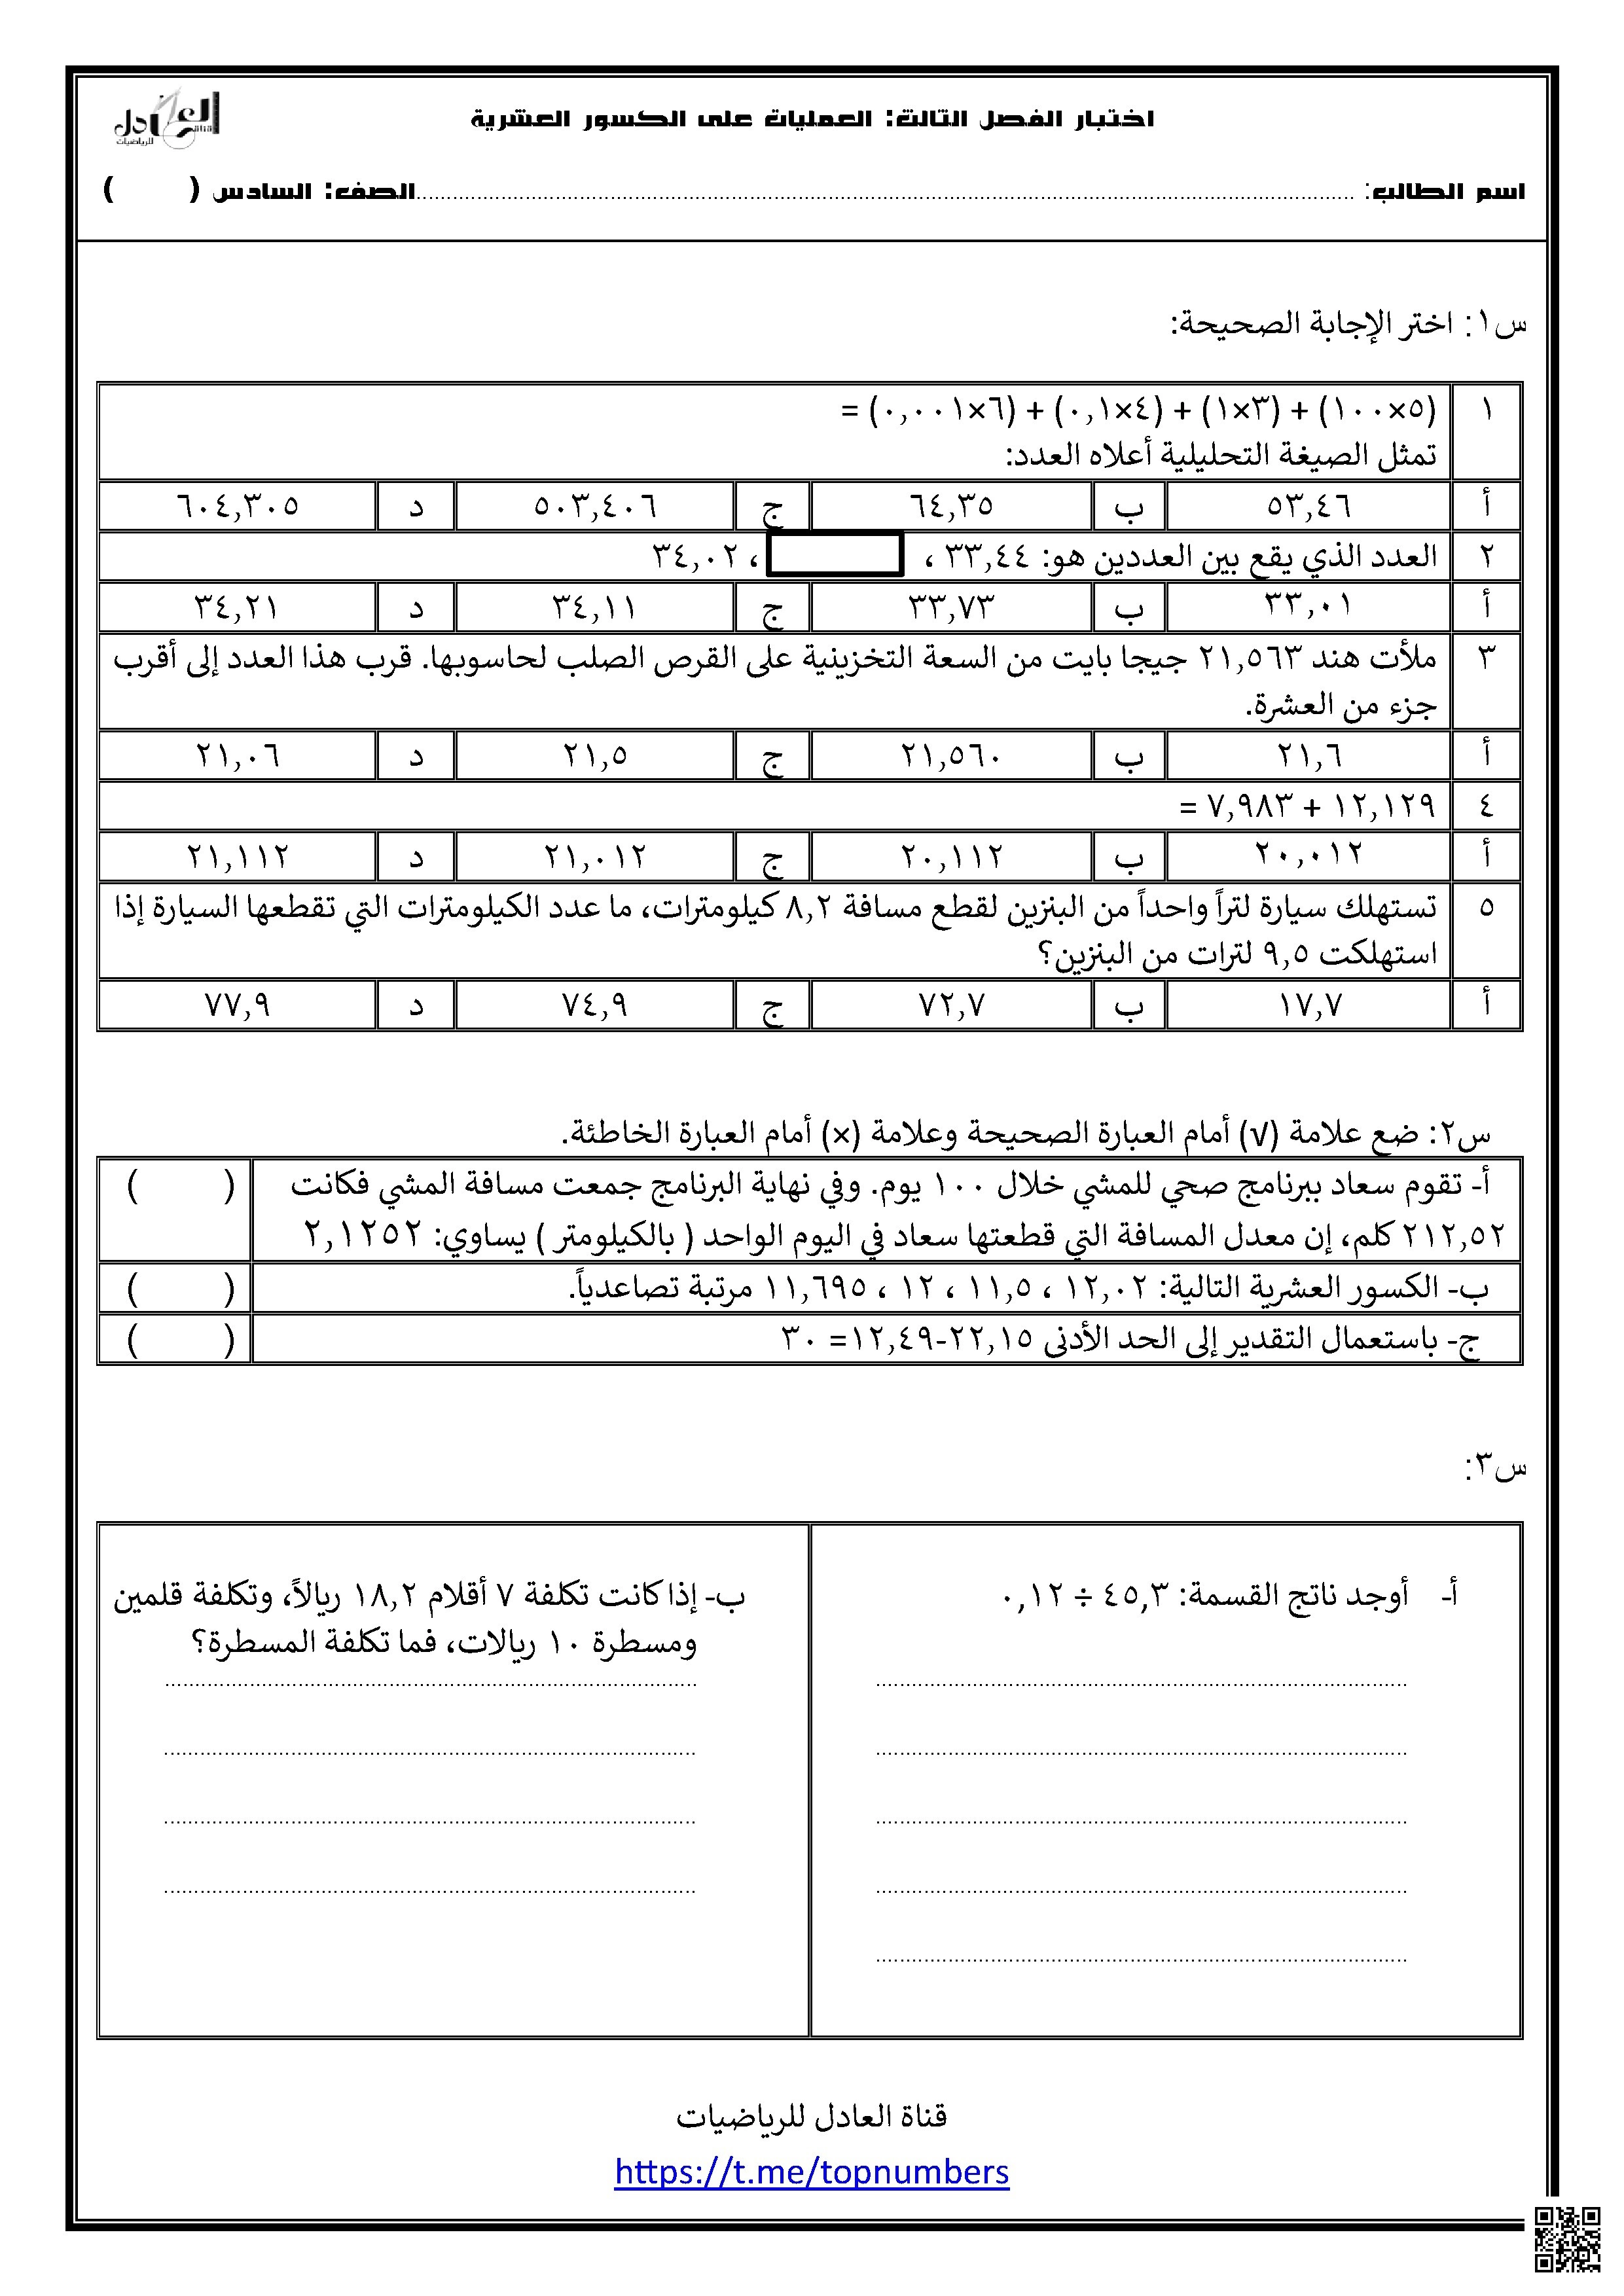 العادل
قناة
للرياضيات
اختبار الفصل الثالث: العمليات على الكسور العشرية
اسم الطالب: ........................................ الصف: السادس ( )
س١: اختر الإجابة الصحيحة:
١ (٥×١٠٠) + (٣×١) + (٤×٠,١) + (٦×٠,٠٠١) =
تمثل الصيغة التحليلية أعلاه العدد:
أ ٥٣,٤٦ ب ٦٤,٣٥ ج ٥٠٣,٤٠٦ د ٦٠٤,٣٠٥
٢ العدد الذي يقع بين العددين هو: ٣٣,٤٤ ، ، ٣٤,٠٢
أ ٣٣,٠١ ب ٣٣,٧٣ ج ٣٤,١١ د ٣٤,٢١
٣ ملأت هند ٢١,٥٦٣ جيجا بايت من السعة التخزينية على القرص الصلب لحاسوبها. قرب هذا العدد إلى أقرب
جزء من العشرة.
أ ٢١,٦ ب ٢١,٥٦٠ ج ٢١,٥ د ٢١,٠٦
٤ ١٢,١٢٩ + ٧,٩٨٣ =
أ ٢٠,٠١٢ ب ٢٠,١١٢ ج ٢١,٠١٢ د ٢١,١١٢
٥ تستهلك سيارة لتراً واحداً من البنزين لقطع مسافة ٨,٢ كيلومترات، ما عدد الكيلومترات التي تقطعها السيارة إذا
استهلكت ٩,٥ لترات من البنزين؟
أ ١٧,٧ ب ٧٢,٧ ج ٧٤,٩ د ٧٧,٩
س٢: ضع علامة (√) أمام العبارة الصحيحة وعلامة (×) أمام العبارة الخاطئة.
أ- تقوم سعاد ببرنامج صحي للمشي خلال ١٠٠ يوم. وفي نهاية البرنامج جمعت مسافة المشي فكانت ( )
٢١٢,٥٢ كلم، إن معدل المسافة التي قطعتها سعاد في اليوم الواحد ( بالكيلومتر ) يساوي: ٢,١٢٥٢
ب- الكسور العشرية التالية: ١٢,٠٢ ، ١١,٥ ، ١٢ ، ١١,٦٩٥ مرتبة تصاعدياً. ( )
ج- باستعمال التقدير إلى الحد الأدنى ٢٢,١٥-١٢,٤٩= ٣٠ ( )
س٣:
أ- أوجد ناتج القسمة: ٤٥,٣ ÷ ٠,١٢
ب- إذا كانت تكلفة ٧ أقلام ١٨,٢ ريالاً، وتكلفة قلمين
ومسطرة ١٠ ريالات، فما تكلفة المسطرة؟
قناة العادل للرياضيات
https://t.me/topnumbers